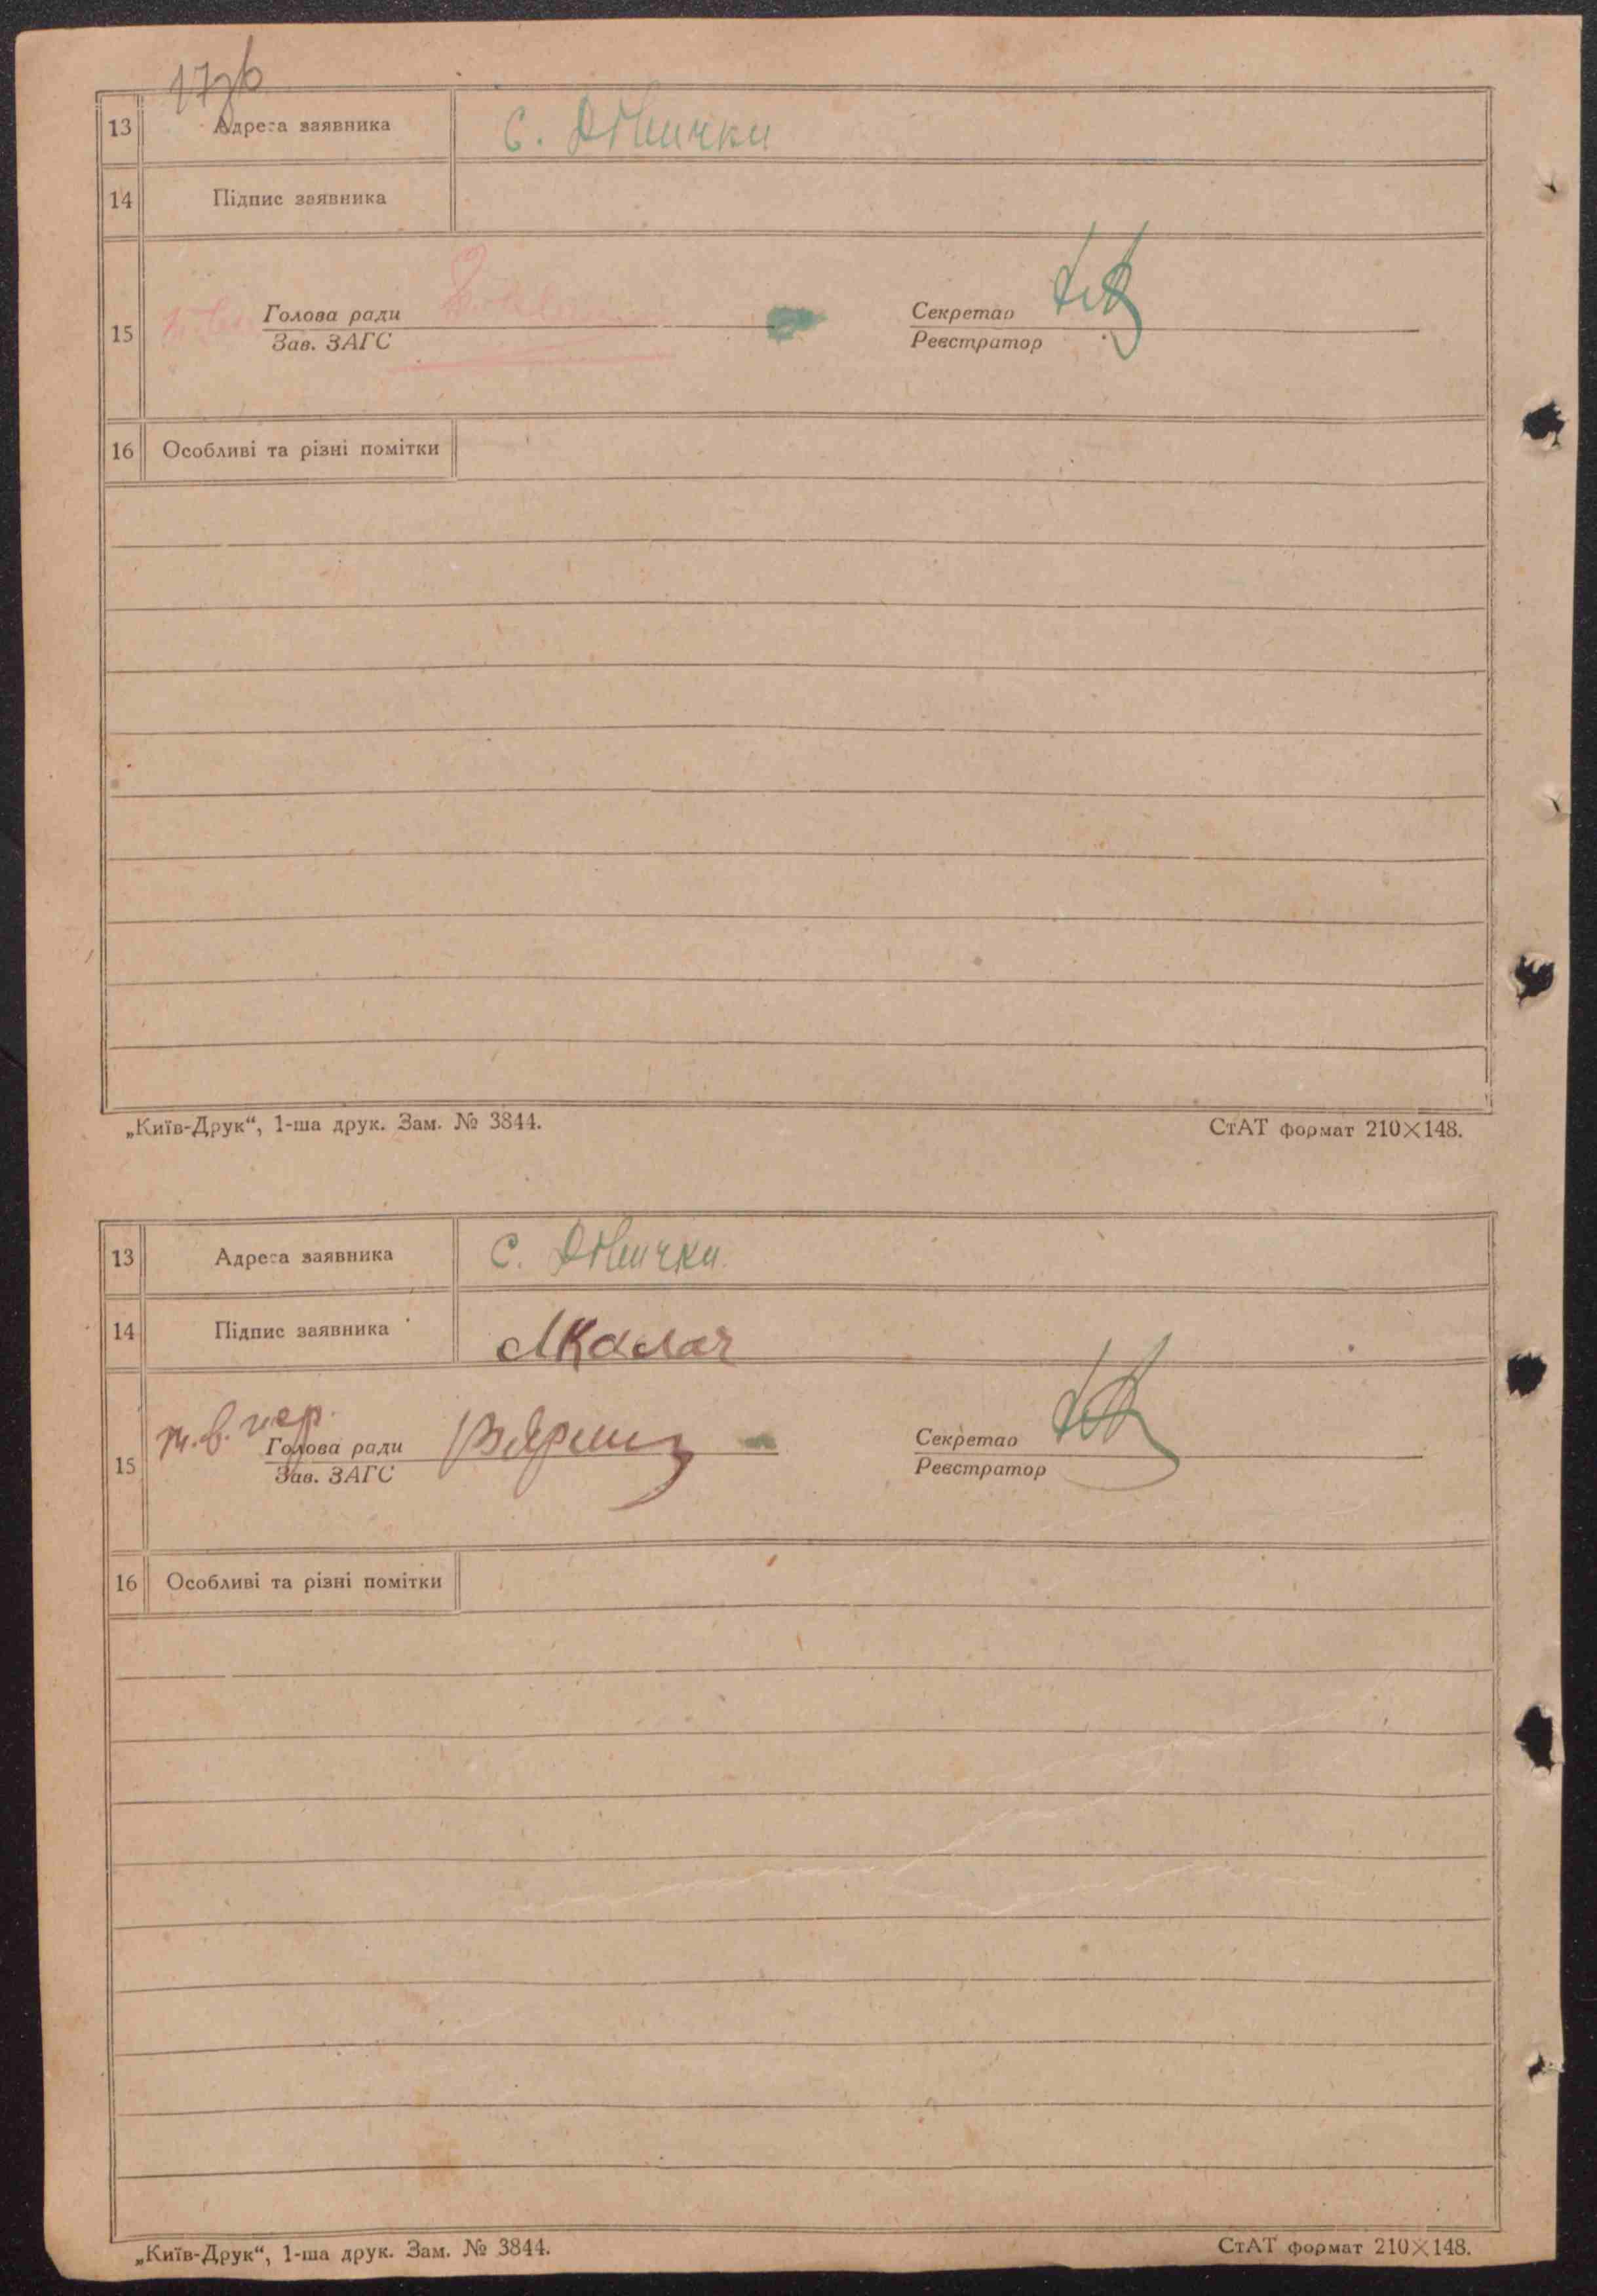 17зв
13 Адреса заявника с. Дівички
14 Підпис заявника
15 Голова ради Секретар
Зав. ЗАГС Реєстратор
16 Особливі та різні помітки
„Київ-Друк“, 1-ша друк. Зам. № 3844. СтАТ формат 210×148.
13 Адреса заявника с. Дівички
14 Підпис заявника Калач
15 т. в. чер. Голова ради Секретар
Зав. ЗАГС Реєстратор
16 Особливі та різні помітки
„Київ-Друк“, 1-ша друк. Зам. № 3844. СтАТ формат 210×148.